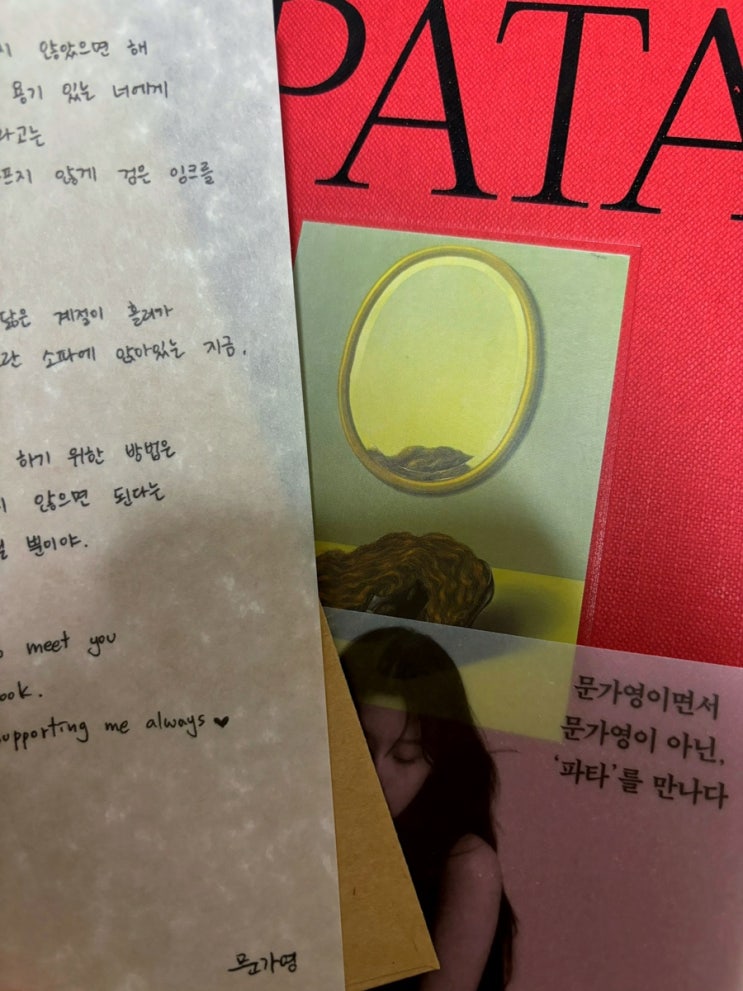 않았으면 해
용기 있는 너에게
라고는
않게 검은 잉크를
닮은 계절이 흘러가
소파에 앉아있는 지금,
하기 위한 방법은
않으면 된다는
뿐이야.
meet you
supporting me always ♥
문가영
PATA
문가영이면서
문가영이 아닌,
‘파타’를 만나다